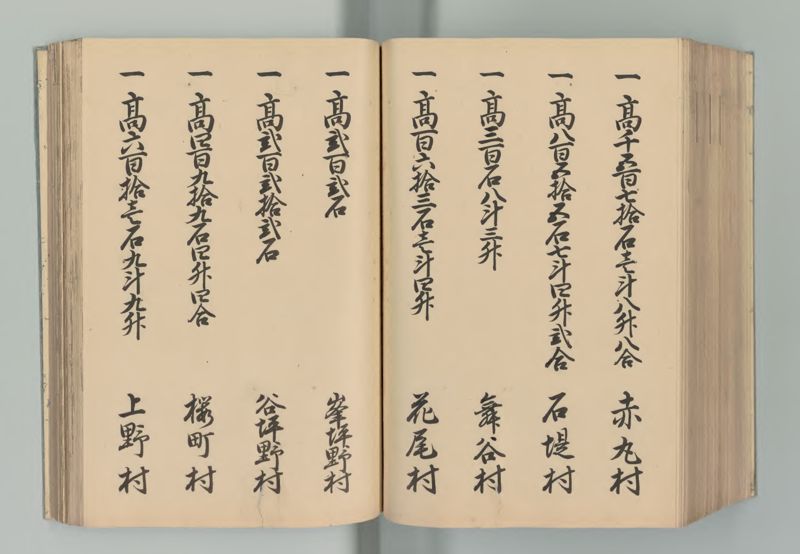 一 高千五百七拾石壱斗八升八合 赤丸村
一 高八百五拾五石七斗四升弐合 石堤村
一 高三百石八斗三升 舞谷村
一 高百六拾三石壱斗四升 花尾村
一 高弐百弐石 峯坪野村
一 高弐百弐拾弐石 谷坪野村
一 高四百九拾九石四升四合 桜町村
一 高六百拾壱石九斗九升 上野村